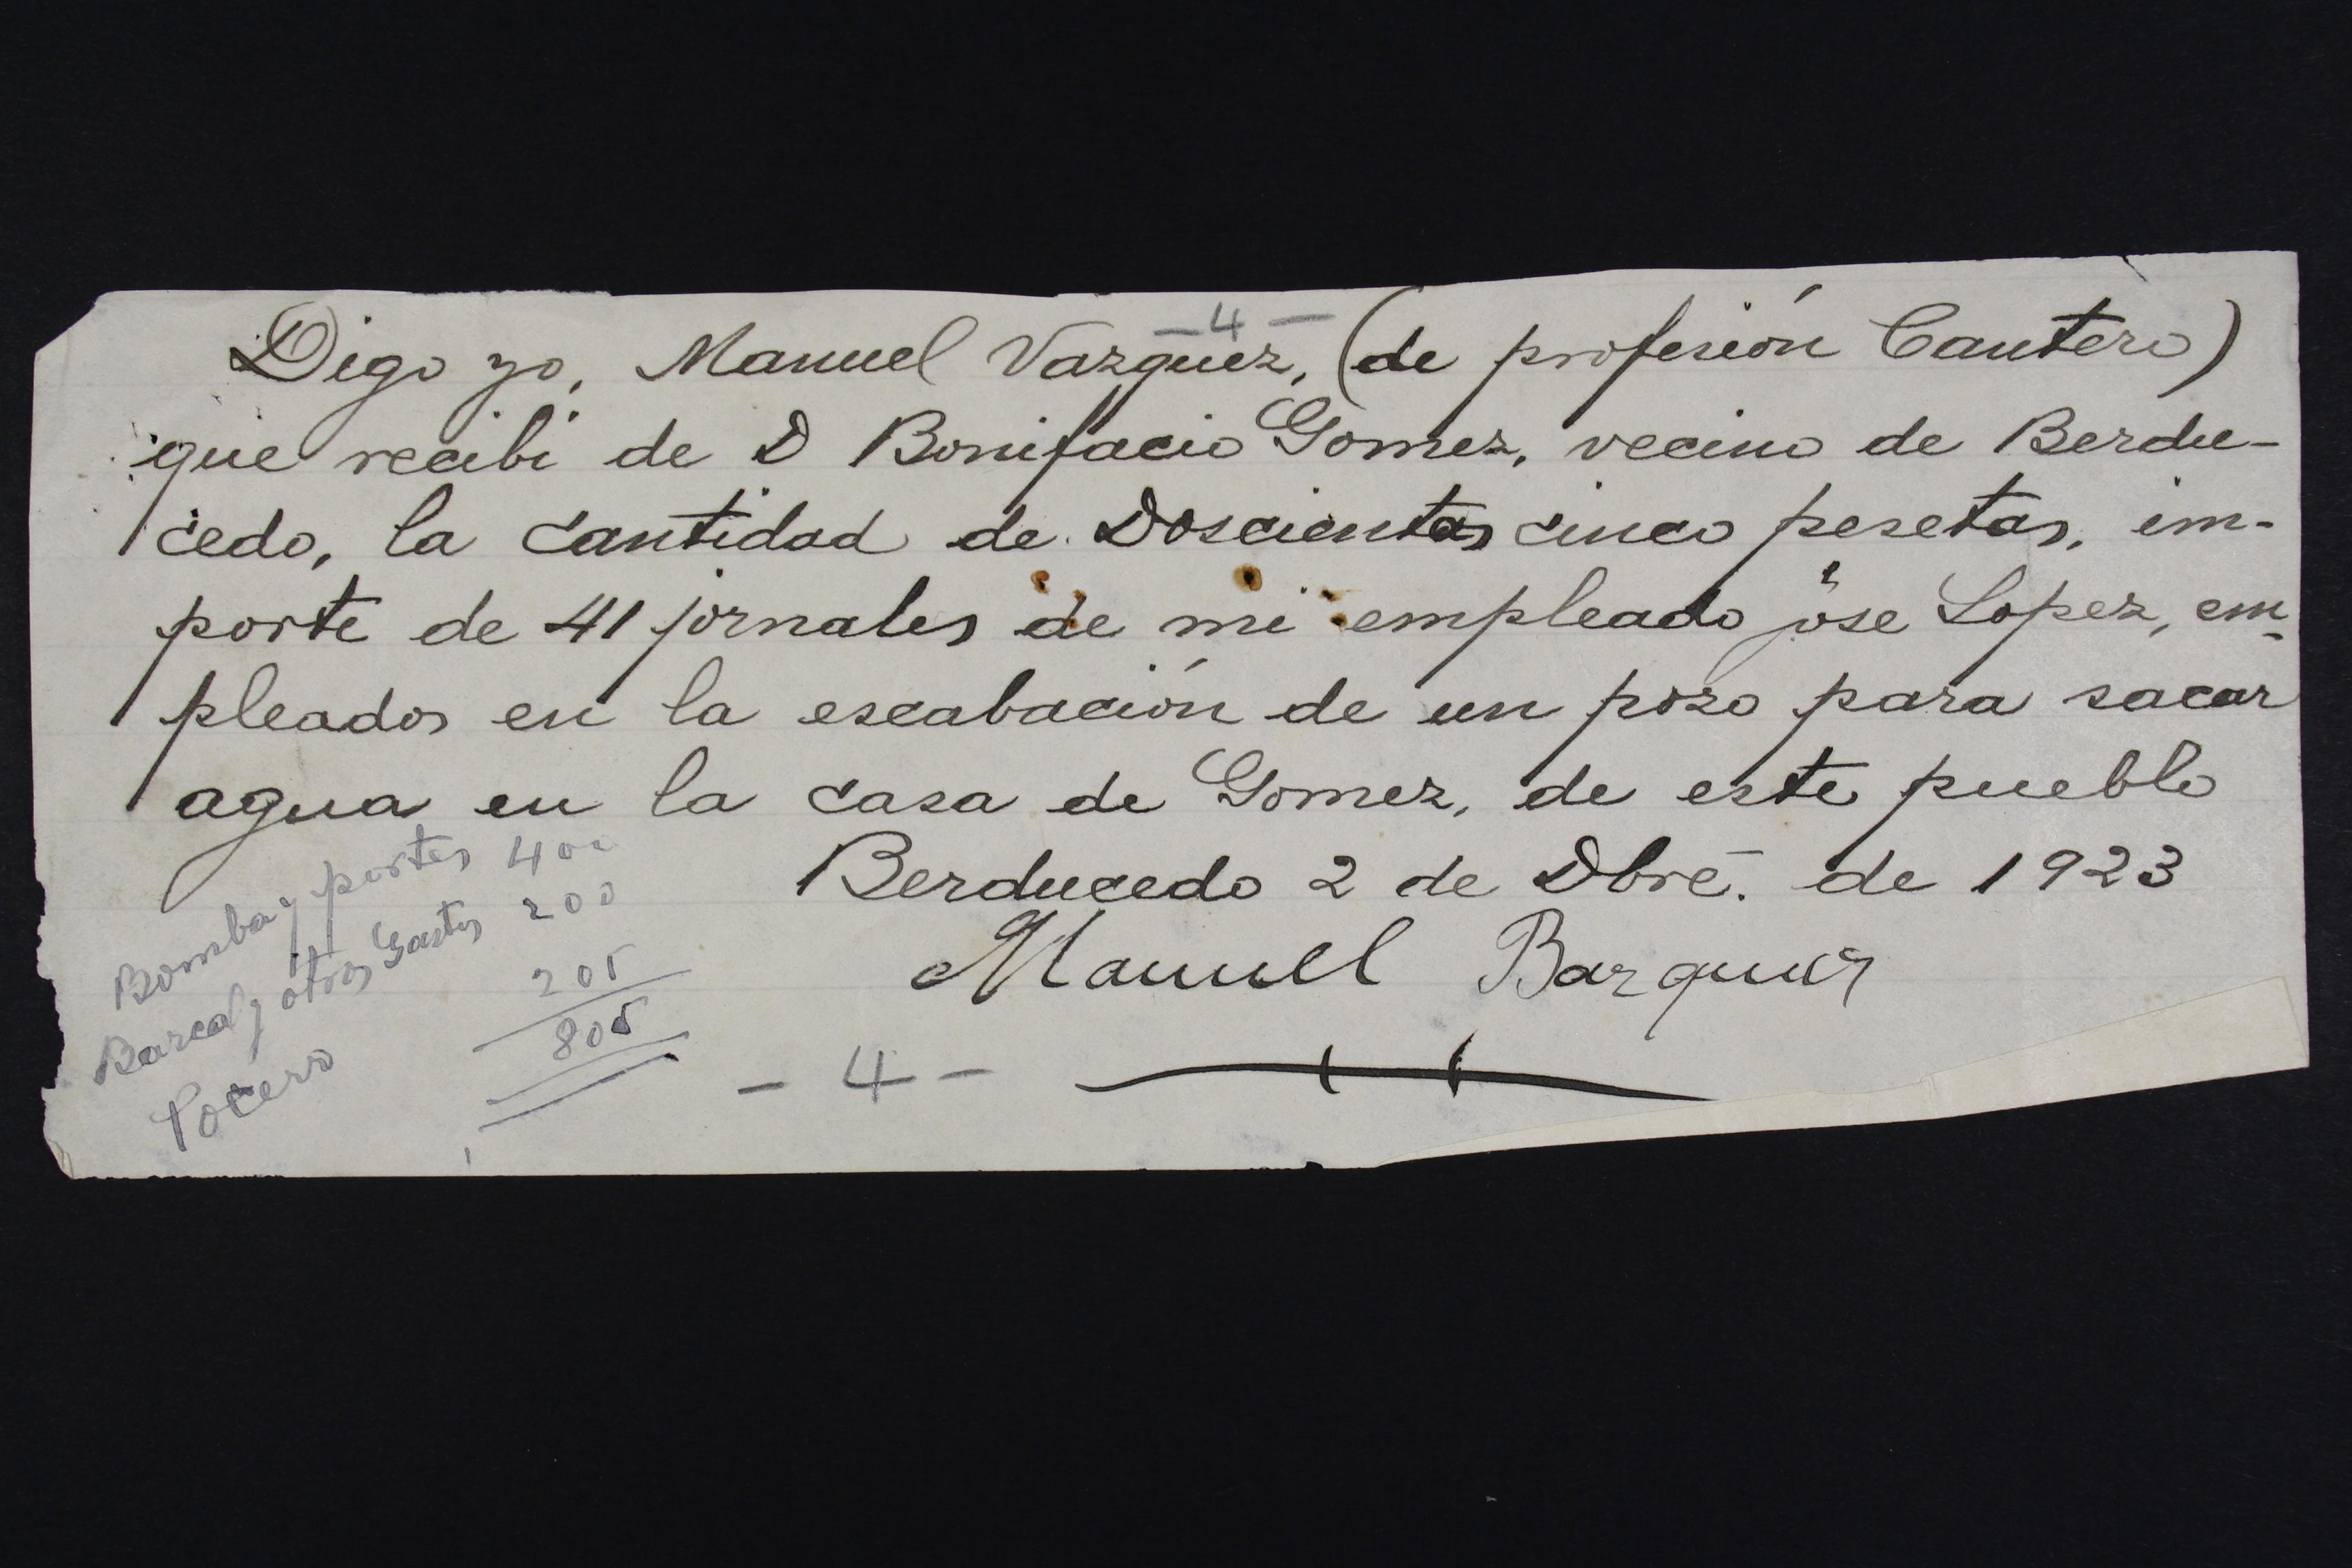 - 4 -
Digo yo, Manuel Vazquez, (de profesión Cantero)
que recibi de D Bonifacio Gomez, vecino de Berdu-
cedo, la cantidad de Doscientas cinco pesetas, im-
porte de 41 jornales de mi empleado jose Lopez, em-
pleados en la escabación de un pozo para sacar
agua en la casa de Gomez, de este pueblo
Berducedo 2 de Dbre. de 1923
Manuel Bazquez
Bomba y portes 400
y otros Gastos 200
Pocero 205
805
- 4 -